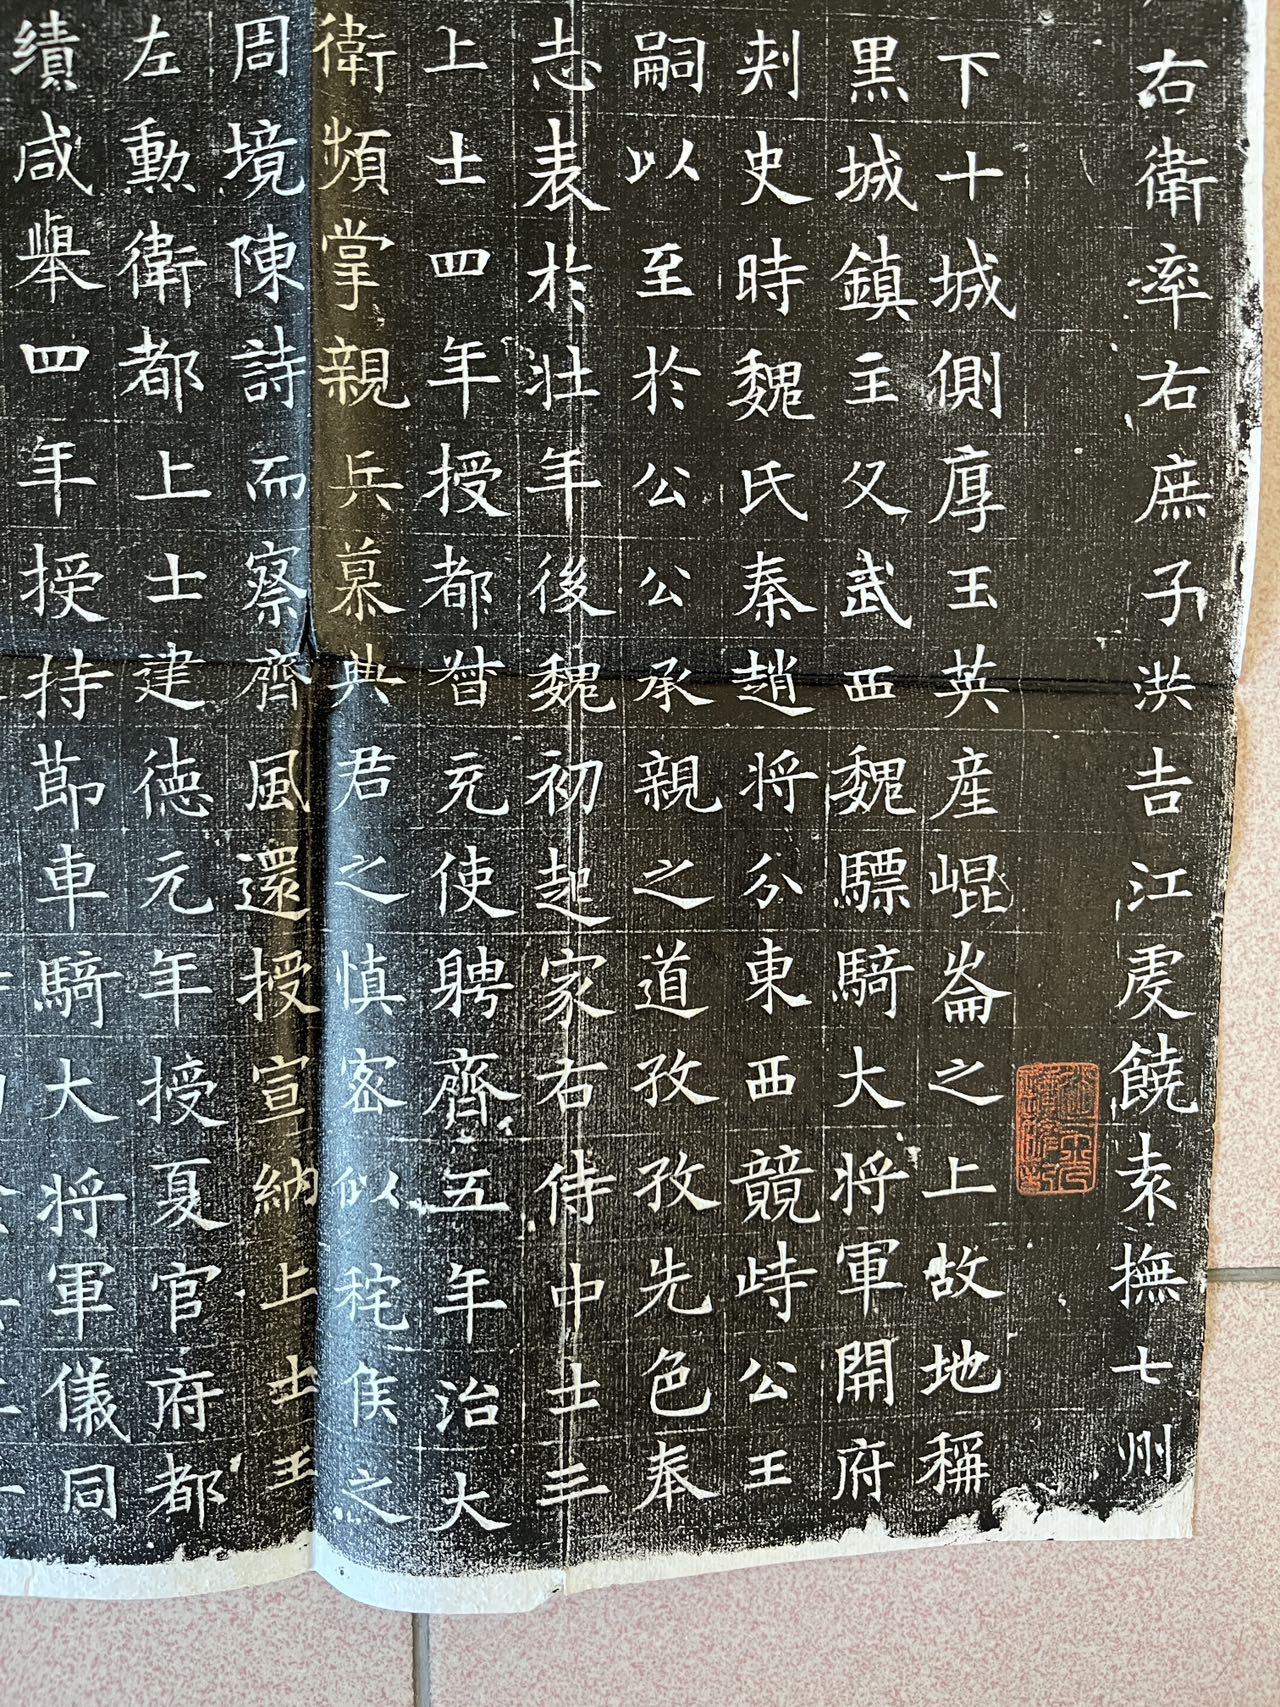 右衛率右庶子洪吉江虔饒袁撫七州
下十城側厚王英産崐崙之上故地稱
黒城鎮主父武西魏驃騎大将軍開府
刾史時魏氏秦趙将分東西競峙公王
嗣以至於公公承親之道孜孜先色奉
志表於壮年後魏初起家右侍中士三
上士四年授都督充使聘齊五年治大
衛頻掌親兵慕典君之慎密似秺侯之
周境陳詩而察齊風還授宣納上士王
左勳衛都上士建徳元年授夏官府都
績咸舉四年授持節車騎大将軍儀同